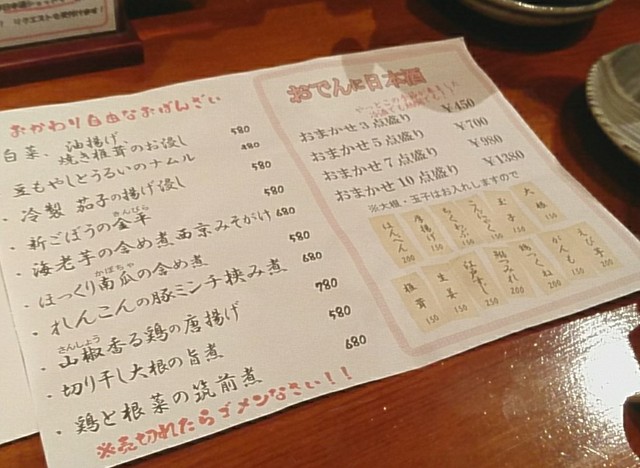 おかわり自由なおばんざい
白菜、油揚げ 焼き椎茸のお浸し 580
豆もやしとうるいのナムル 480
・冷製 茄子の揚げ浸し 580
・新ごぼうの金平 580
きんぴら
・海老芋の含め煮西京みそがけ 680
・ほっくり南瓜の含め煮 580
かぼちゃ
・れんこんの豚ミンチ挟み煮 680
・山椒香る鶏の唐揚げ 780
さんしょう
・切り干し大根の旨煮 580
・鶏と根菜の筑前煮 680
※売切れたらゴメンなさい!!
おでんに日本酒
おまかせ3点盛り ¥450
おまかせ5点盛り ¥700
おまかせ7点盛り ¥980
おまかせ10点盛り ¥1280
※大根・玉子はお入れしますので
大根 150
玉子
ちくわぶ
唐揚げ
はんぺん 200
えび芋 200
がんも 150
鶏つくね 200
生姜 150
椎茸 150